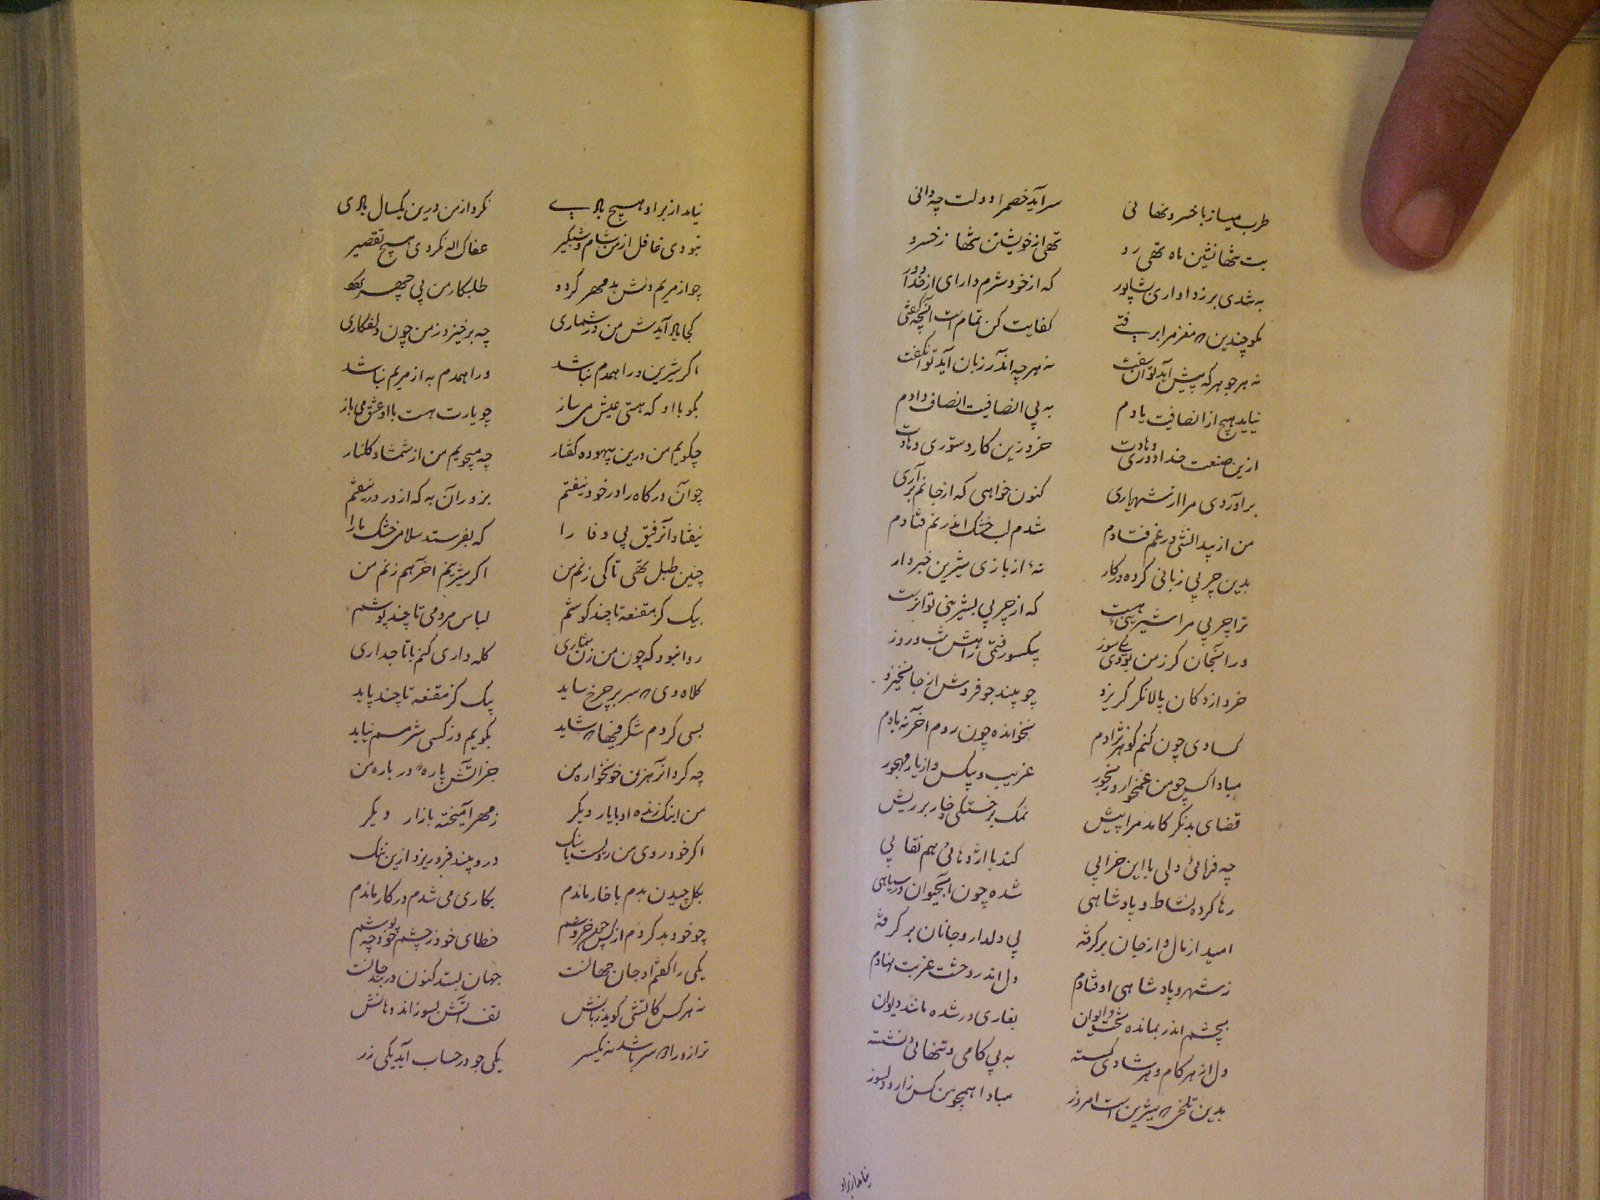 طرب میساز با خسرو نهانی سرآید خصم را دولت چه دانی
بت تنها نشین ماه تهی رو تهی از خویشتن تنها ز خسرو
به تندی بر زد اوازی بشاپور که از خود شرم دار ای از خدا دور
مگو چندین که مغزم را برفتی کفایت کن تمام است آنچه گفتی
نه هر جوهر که پیش آید توان سفت نه هرچه اندر زبان آید توان گفت
نیاید هیچ از انصافت یادم به بی انصافیت انصاف دادم
ازین صنعت خدا دوری دهادت خرد زین کار دستوری دهادت
برآوردی مرا از شهریاری کنون خواهی که از جانم برآری
من از بیدانشی در غم فتادم شدم لب خشک اندر نم فتادم
بدین چربی زبانی کرده در کار نهٔ از بازی شیرین خبردار
ترا چربی مرا شیرینیی هست که از چربی بشیرینی توان رست
در انجان کز من بودی یکی سوز به یکسو رفتمی زاهش شب و روز
خر از دکان پالانگر گریزد چو بیند جو فروش از جا نخیزد
کسادی چون کنم گوهر نژادم نخوانده چون روم آخر نه بادم
مبادا کس چو من غمخوار و رنجور غریب و بیکس و از یار مهجور
قضای بد نگر کامد مرا پیش نمک بر خستگی و خار بر ریش
چه فرمائی دلی با این خرابی کند با اژدهائی هم نقابی
رها کرده نشاط و پادشاهی شده چون آبحیوان در سیاهی
امید از مال و از جان برگرفته پی دلدار و جانان برگرفته
ز شهر و پادشاهی اوفتادم دل اندر وحشت غربت نهادم
بچشم اندر بمانده تخت و ایوان بغاری در شده مانند دیوان
دل از هر کام و هر شادی گسسته به بی کامی و تنهائی نشسته
بدین تلخی که شیرین است امروز مبادا همچو من کس زار و دلسوز
نیامد از بر او
نیامد از بر او هیچ بادی نکرد از من درین یکسال یادی
نبودی غافل از من شام و شبگیر عفاک الله نکردی هیچ تقصیر
چو از مریم دلش بد مهر گردد طلبکار من بی چهر گردد
کجا یاد آیدش من در شماری چه برخیزد ز من چون دلفکاری
اگر شیرین ورا همدم نباشد ورا همدم به از مریم نباشد
بگو با او که هستی عیش می ساز چو یارت هست با او عشق می باز
چگویم من درین بیهوده گفتار چه میجویم من از شمشاد گلنار
چو آن درگاه را در خود نیفتم بزور آن به که از در در نیفتم
نیفتاد آن رفیق بی وفا را که بفرستد سلامی خشک ما را
چنین طبل تهی تا کی زنم من اگر شیرینم آخر هم زنم من
بیک گز مقنعه تا چند کوشم لباس مردمی تا چند پوشم
روا نبود که چون من زن شماری کله داری کنم با تاجداری
کلاه وی که سر بر چرخ ساید بیک گز مقنعه تا چند پاید
بسی کردم شگرفیها که شاید بگویم وز کسی شرمم نیاید
چه کرد آن رهزن خونخواره من جز آتش پارهٔ در باره من
من اینک زنده او با یار دیگر ز مهر آمیخته بازار دیگر
اگر خود روی من رویست یا سنگ درو بیند فرو ریزد ازین ننگ
بگل چیدن بدم با خار ماندم بکاری می شدم در کار ماندم
چو خود بد کردم از کس چون خروشم خطای خود ز چشم خود چه پوشم
یکی را گفتم او جان جهانست جهان بستد کنون دربند جانست
نه هر کس کاتشی گوید زبانش تف آتش بسوزاند دهانش
ترازو را دو سر باشد نه یکسر یکی جو در حساب آید یکی زر